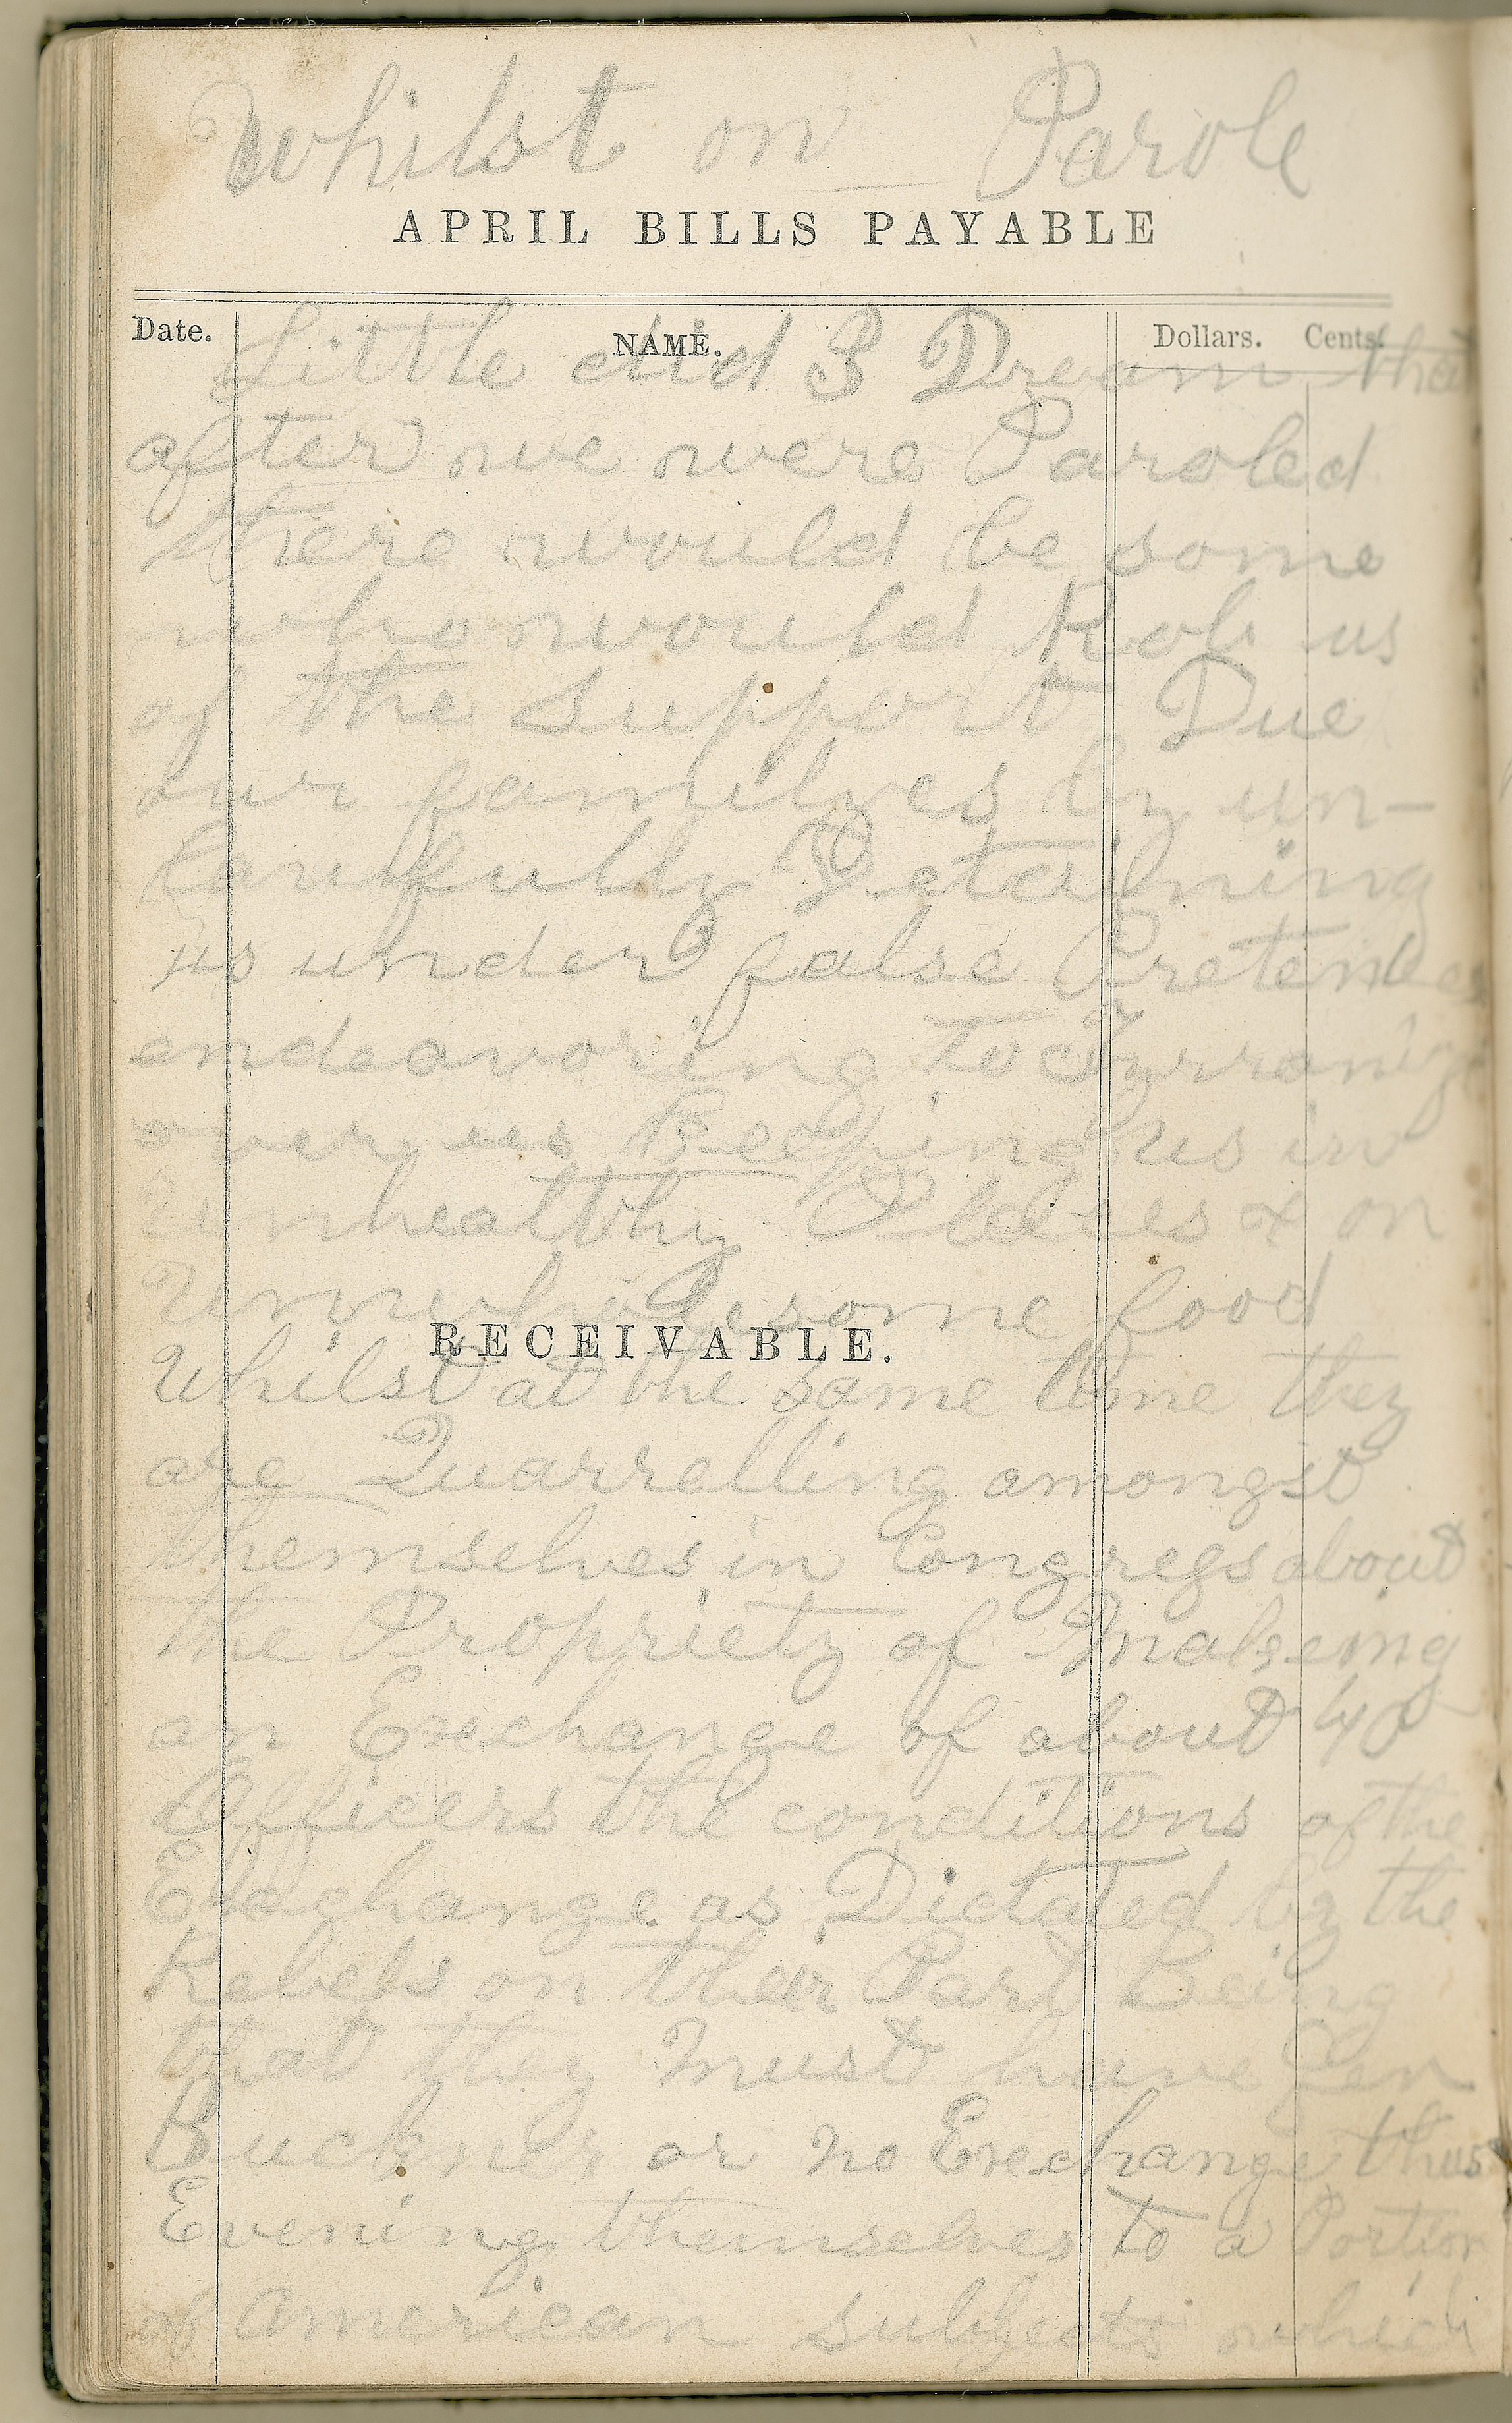 Whilst on Parole
APRIL BILLS PAYABLE
Date. NAME. Dollars. Cents.
Little did I Dream that
after we were Paroled
there would be some
who would Rob us
of the Support Due
our familyes by un-
lawfully Detaining
us under false Pretenses
endeavoring to
over us Keeping us in
Unhealthy Places & on
Unwholesome food
RECEIVABLE.
Whilst at the same time they
are Quarrelling amongst
themselves in Congress about
the Propriety of Makeing
an Exchange of about 40
Officers the conditions of the
Exchange as Dictated by the
Rebels on their Part Being
that they must have Gen
Buckner or no Exchange thus
Evening themselves to a Portion
of American subjects which